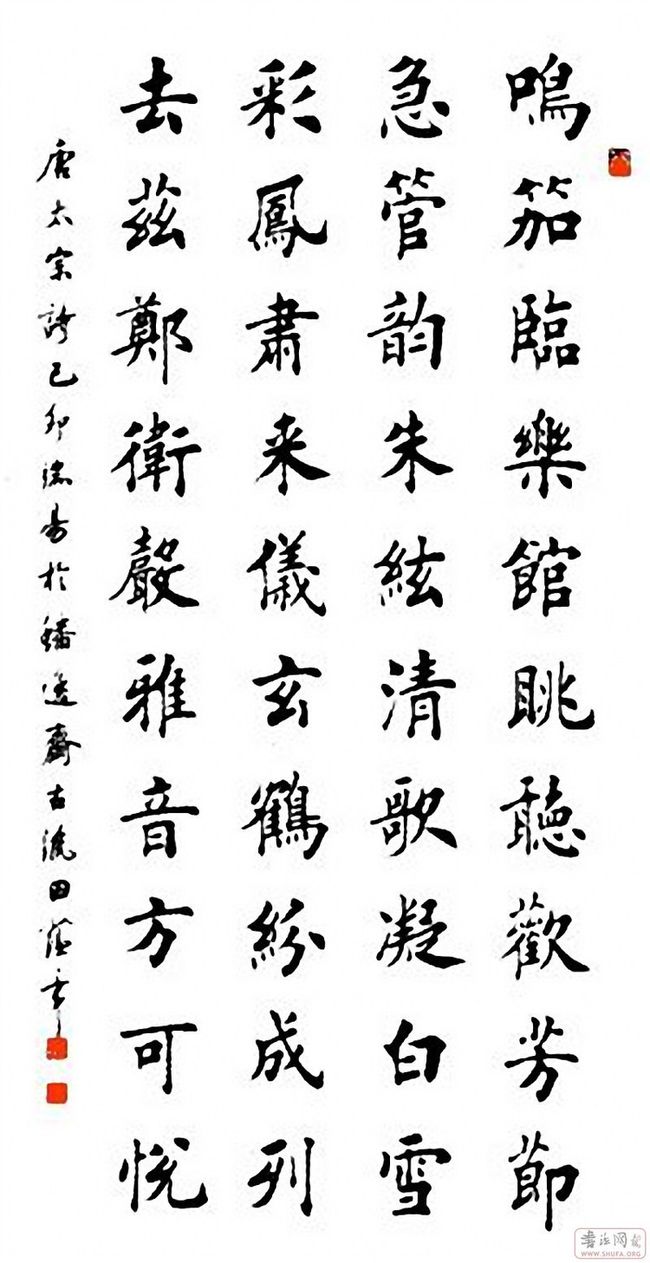 鳴笳臨樂館眺聽歡芳節
急管韵朱絃清歌凝白雪
彩鳳肅来儀玄鶴紛成列
去茲鄭衛聲雅音方可悅
唐太宗詩己卯端陽於
齋古流田蘊章
書法网
WWW.SHUFA.ORG